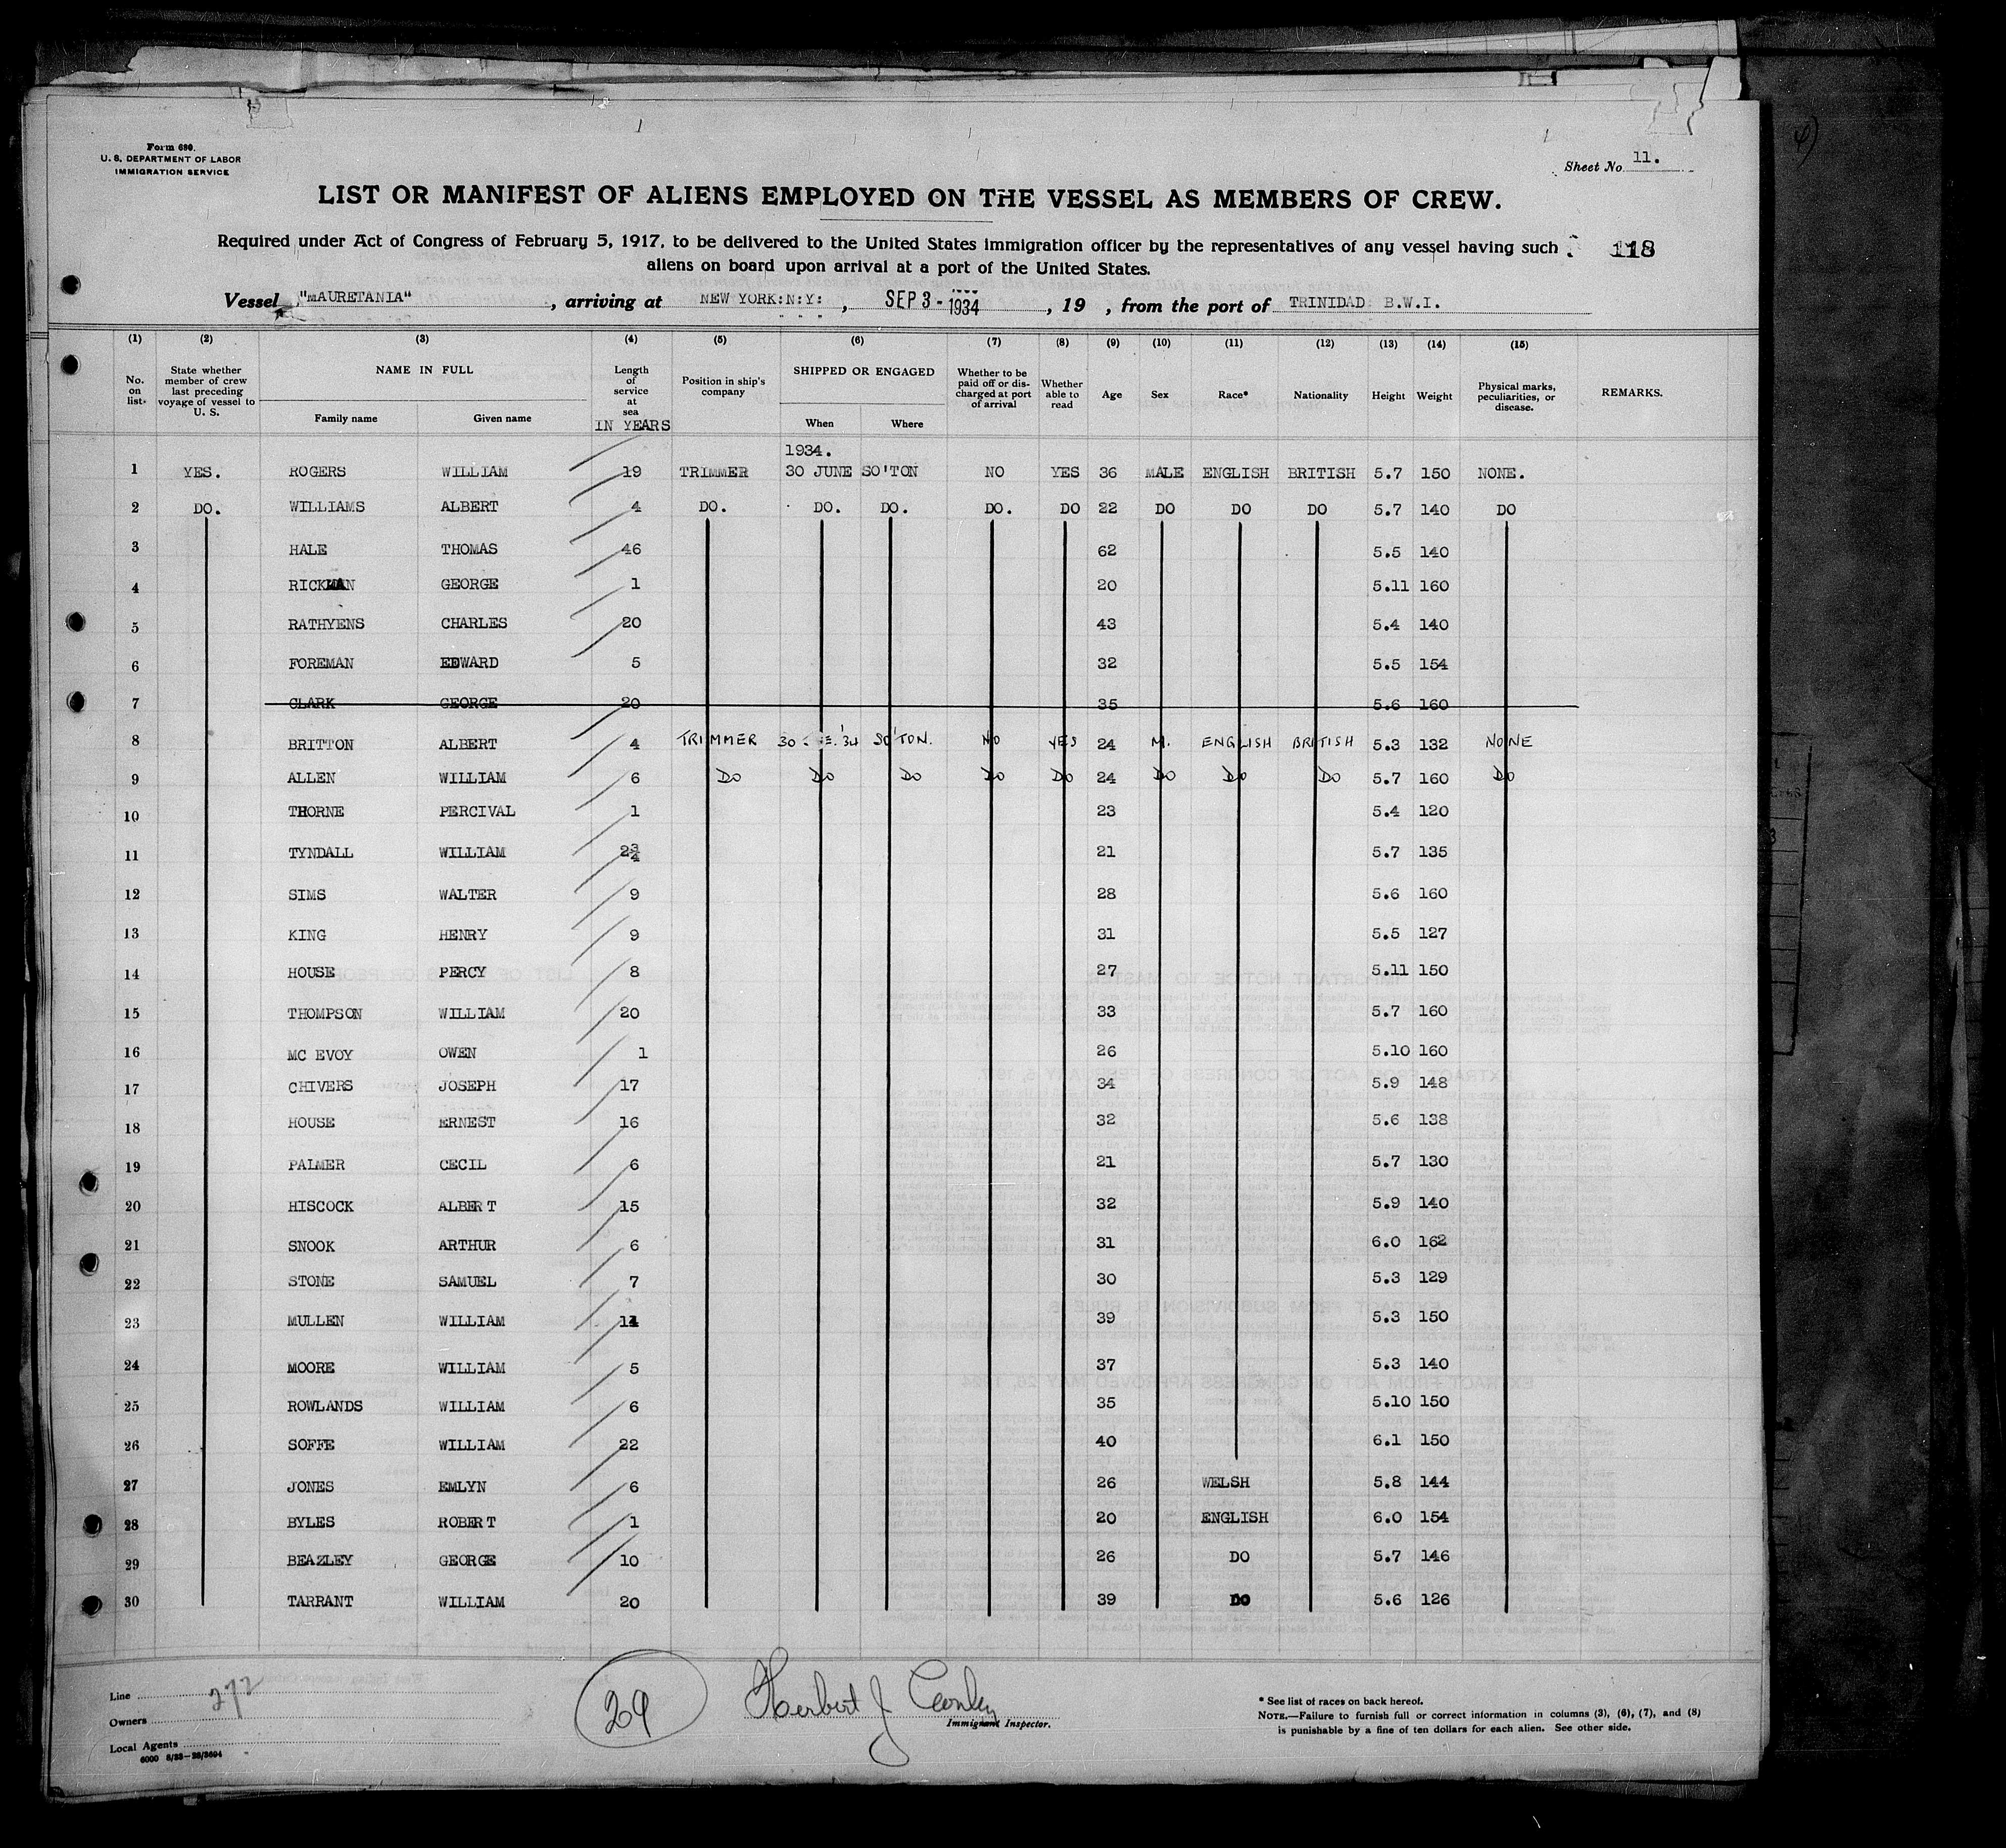 Form 680.
U. S. DEPARTMENT OF LABOR
IMMIGRATION SERVICE
Sheet No 11.
LIST OR MANIFEST OF ALIENS EMPLOYED ON THE VESSEL AS MEMBERS OF CREW.
Required under Act of Congress of February 5, 1917, to be delivered to the United States immigration officer by the representatives of any vessel having such
aliens on board upon arrival at a port of the United States.
118
Vessel "mAURETANIA", arriving at NEW YORK:N:Y:, SEP 3 - 1934, 19 , from the port of TRINIDAD B.W.I.
(1) (2) (3) (4) (5) (6) (7) (8) (9) (10) (11) (12) (13) (14) (15)
No. on list State whether member of crew last preceding voyage of vessel to U. S. NAME IN FULL Family name Given name Length of service at sea IN YEARS Position in ship's company SHIPPED OR ENGAGED When Where Whether to be paid off or discharged at port of arrival Whether able to read Age Sex Race* Nationality Height Weight Physical marks, peculiarities, or disease. REMARKS.
1934.
1 YES. ROGERS WILLIAM 19 TRIMMER 30 JUNE SO'TON NO YES 36 MALE ENGLISH BRITISH 5.7 150 NONE.
2 DO. WILLIAMS ALBERT 4 DO. DO. DO. DO. DO 22 DO DO DO 5.7 140 DO
3 HALE THOMAS 46 62 5.5 140
4 RICKMAN GEORGE 1 20 5.11 160
5 RATHYENS CHARLES 20 43 5.4 140
6 FOREMAN EDWARD 5 32 5.5 154
7 CLARK GEORGE 20 35 5.6 160
8 BRITTON ALBERT 4 TRIMMER 30 '34 SO'TON. NO YES 24 M. ENGLISH BRITISH 5.3 132 NONE
9 ALLEN WILLIAM 6 DO DO DO DO DO 24 DO DO DO 5.7 160 DO
10 THORNE PERCIVAL 1 23 5.4 120
11 TYNDALL WILLIAM 2¾ 21 5.7 135
12 SIMS WALTER 9 28 5.6 160
13 KING HENRY 9 31 5.5 127
14 HOUSE PERCY 8 27 5.11 150
15 THOMPSON WILLIAM 20 33 5.7 160
16 MC EVOY OWEN 1 26 5.10 160
17 CHIVERS JOSEPH 17 34 5.9 148
18 HOUSE ERNEST 16 32 5.6 138
19 PALMER CECIL 6 21 5.7 130
20 HISCOCK ALBERT 15 32 5.9 140
21 SNOOK ARTHUR 6 31 6.0 162
22 STONE SAMUEL 7 30 5.3 129
23 MULLEN WILLIAM 14 39 5.3 150
24 MOORE WILLIAM 5 37 5.3 140
25 ROWLANDS WILLIAM 6 35 5.10 150
26 SOFFE WILLIAM 22 40 6.1 150
27 JONES EMLYN 6 26 WELSH 5.8 144
28 BYLES ROBERT 1 20 ENGLISH 6.0 154
29 BEAZLEY GEORGE 10 26 DO 5.7 146
30 TARRANT WILLIAM 20 39 DO 5.6 126
Line
272
Owners
Local Agents
6000 8/33-28/3694
29
Herbert J
Immigrant Inspector.
* See list of races on back hereof.
NOTE.—Failure to furnish full or correct information in columns (3), (6), (7), and (8)
is punishable by a fine of ten dollars for each alien. See other side.